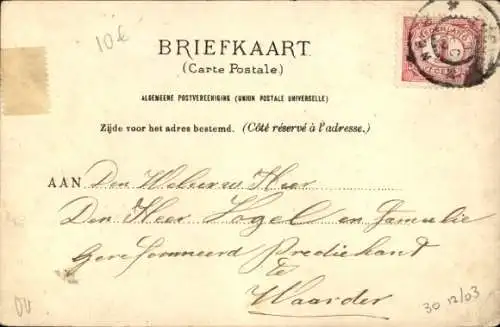 10 €
BRIEFKAART.
(Carte Postale.)
ALGEMEENE POSTVEREENIGING (UNION POSTALE UNIVERSELLE)
Zijde voor het adres bestemd. (Côté réservé à l'adresse.)
AAN Den Weleerw Heer
Den Heer Vogel en familie
Gereformeerd Predikant
te
Waarder
30 12/03